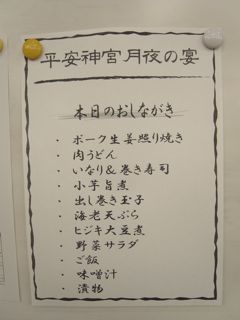 平安神宮月夜の宴
本日のおしながき
・ ポーク生姜照り焼き
・ 肉うどん
・ いなり&巻き寿司
・ 小芋旨煮
・ 出し巻き玉子
・ 海老天ぷら
・ ヒジキ大豆煮
・ 野菜サラダ
・ ご飯
・ 味噌汁
・ 漬物